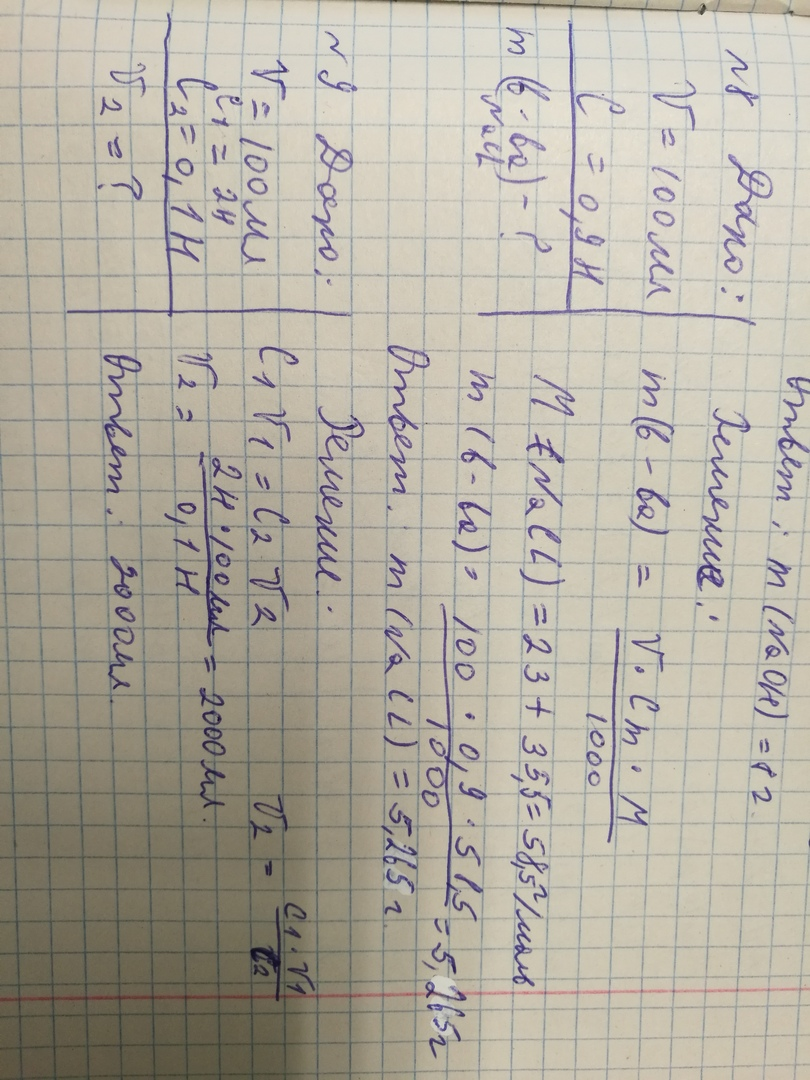 Ответ: m(NaOH) = 8 г
№8 Дано:
V = 100 мл
C = 0,9 н
m(в-ва) - ?
NaCl
Решение:
m(в-ва) = V · Cm · M / 1000
M (NaCl) = 23 + 35,5 = 58,5 г/моль
m(в-ва) = 100 · 0,9 · 58,5 / 1000 = 5,265 г
Ответ: m(NaCl) = 5,265 г.
№9 Дано:
V = 100 мл
C1 = 2н
C2 = 0,1 н
V2 = ?
Решение:
C1 V1 = C2 V2 V2 = C1 · V1 / C2
V2 = 2н · 100мл / 0,1 н = 2000 мл.
Ответ: 2000 мл.